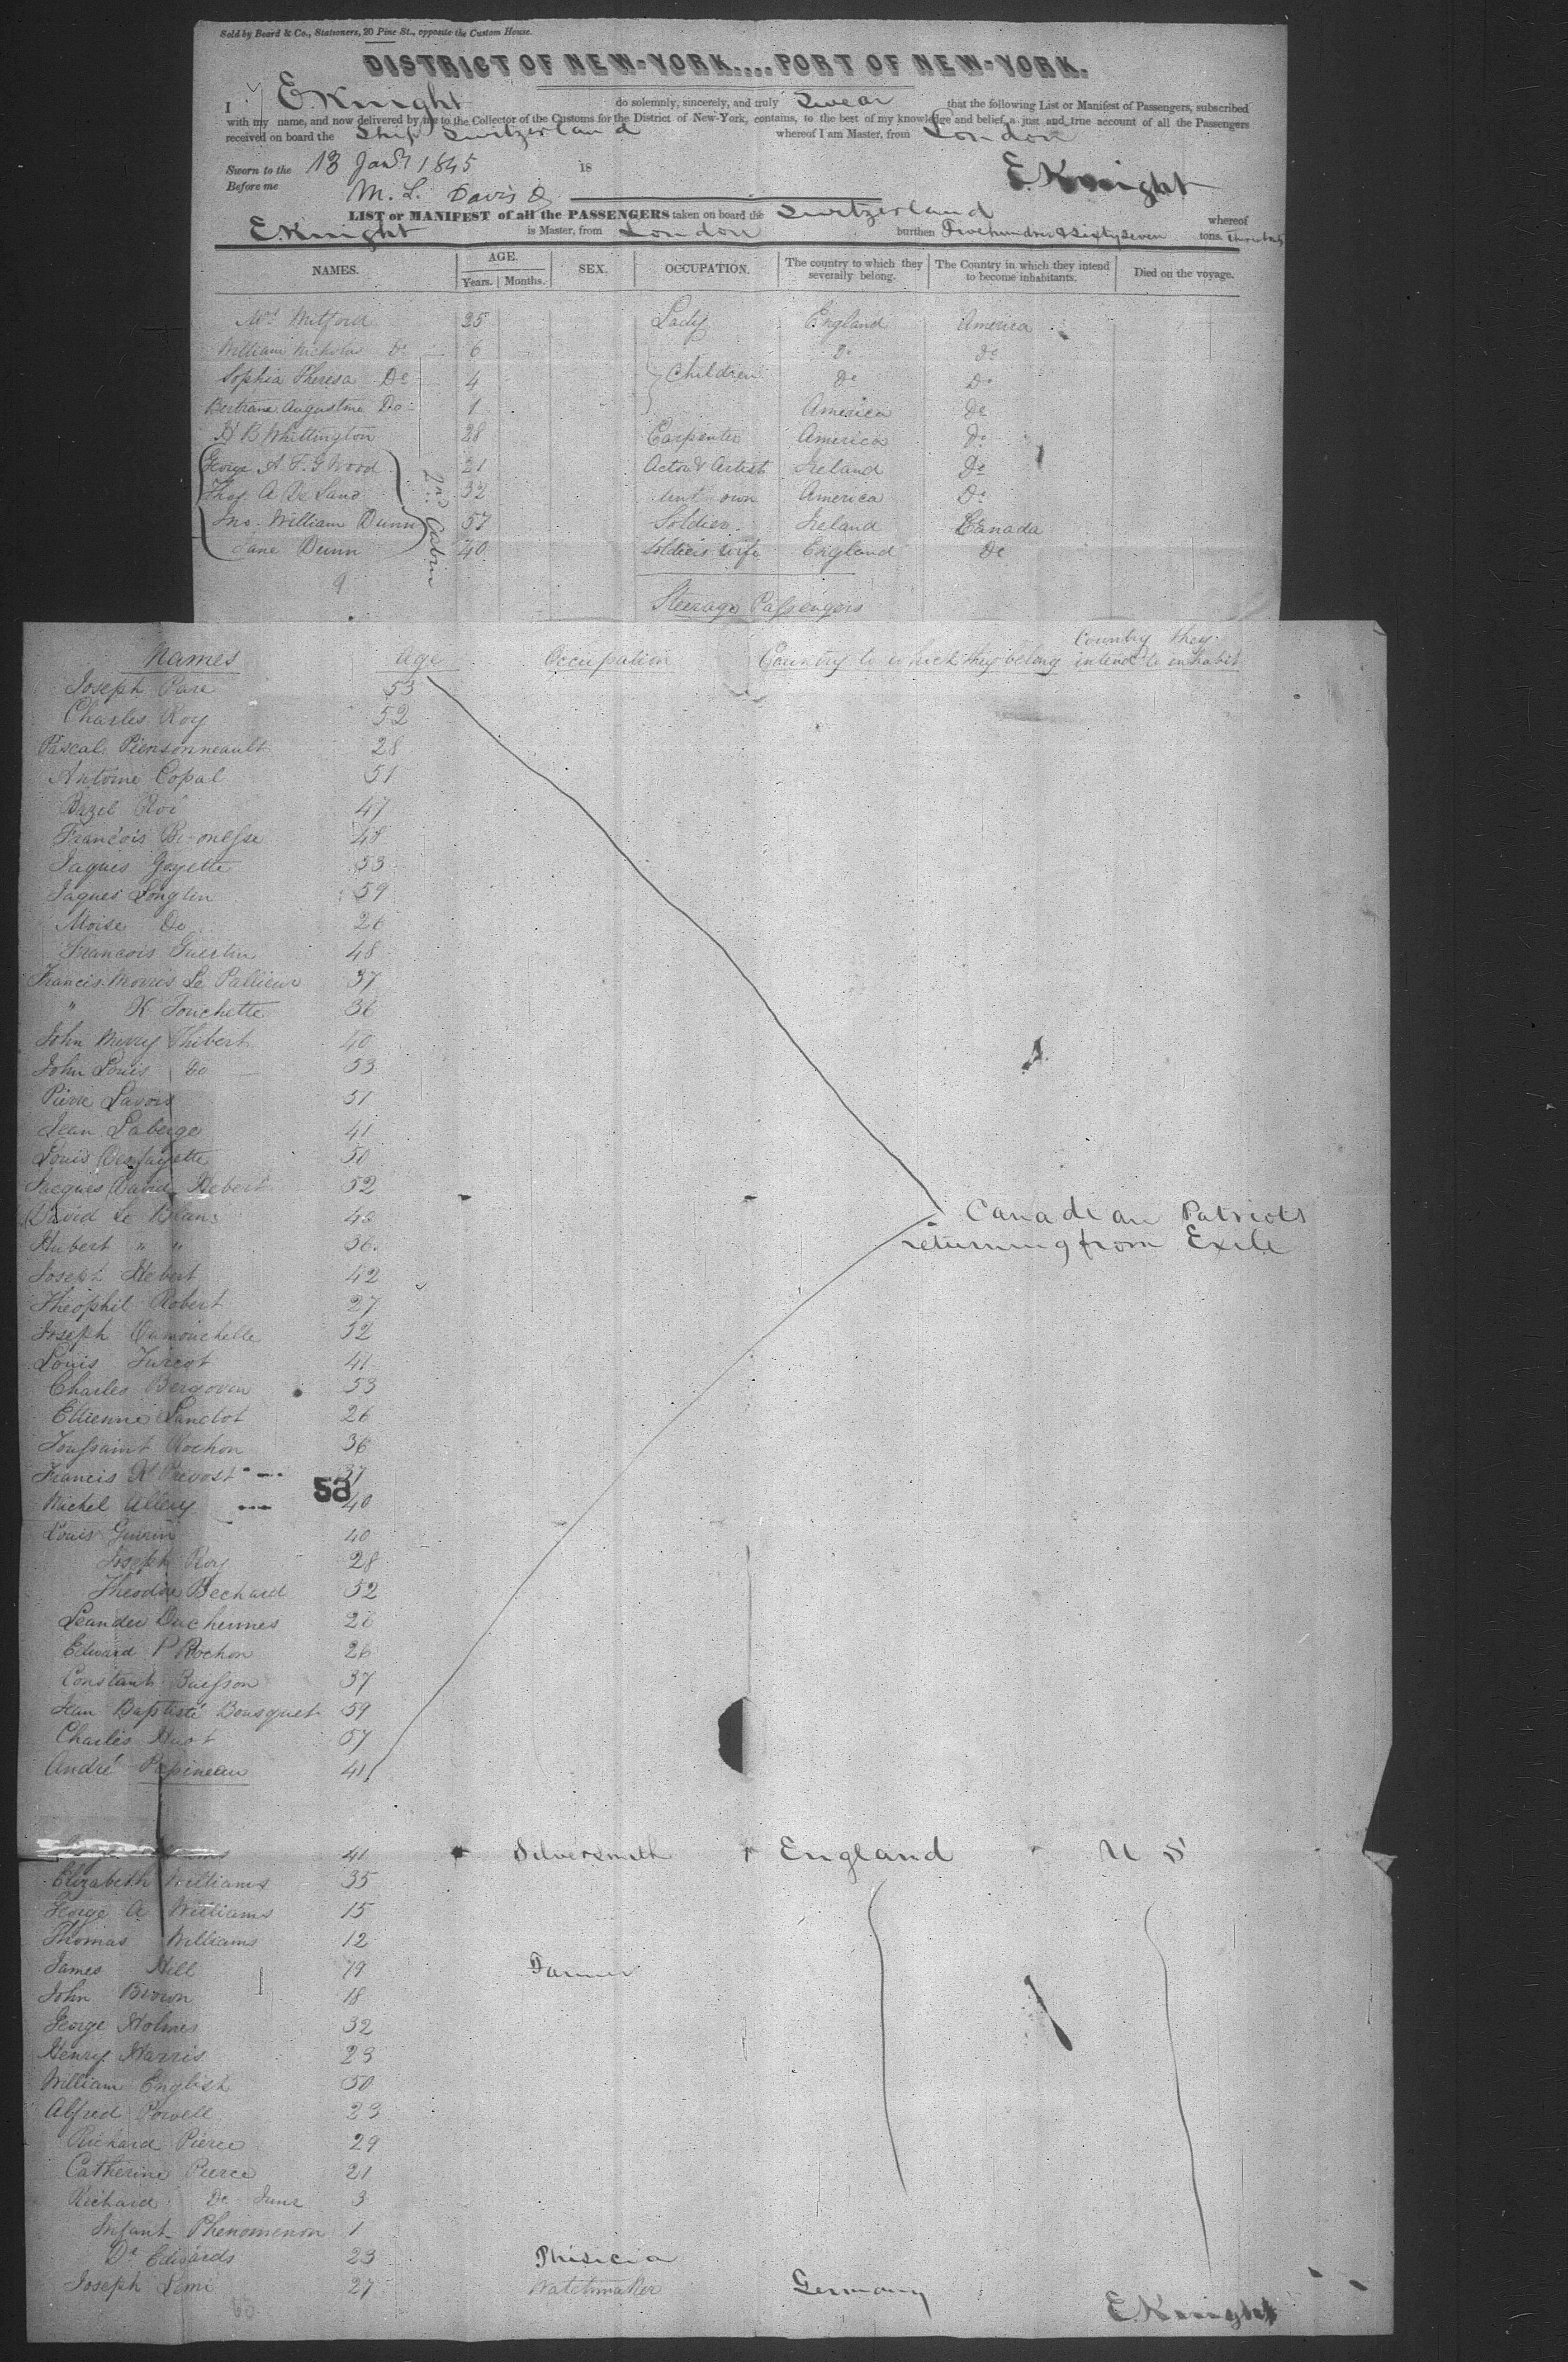 Sold by Board & Co., Stationers, 20 Pine St., opposite the Custom House.
DISTRICT OF NEW-YORK....PORT OF NEW-YORK.
I E. Knight do solemnly, sincerely, and truly Swear that the following List or Manifest of Passengers, subscribed
with my name, and now delivered by me to the Collector of the Customs for the District of New-York, contains, to the best of my knowledge and belief, a just and true account of all the Passengers
received on board the Ship Switzerland whereof I am Master, from London
Sworn to the 13 Jany 1845 18
Before me M. L. Davis
E Knight
LIST or MANIFEST of all the PASSENGERS taken on board the Switzerland whereof
E Knight is Master, from London burthen Five hundred & Sixty Seven tons.
NAMES. AGE. Years. Months. SEX. OCCUPATION. The country to which they severally belong. The Country in which they intend to become inhabitants. Died on the voyage.
Mrs Mitford 25 Lady England America
William Nicholas Do 6 Do Do
Sophia Theresa Do 4 Children Do Do
Bertram Augustine Do 1 America Do
H B Whittington 28 Carpenter America Do
George A. F. G Wood 21 Actor & Artist Ireland Do
Thos. A De Sand 32 unknown America Do
Jno. William Dunn 57 Soldier Ireland Canada
Jane Dunn 40 Soldiers wife England Do
2nd Cabin
9
Steerage Passengers
Names Age Occupation Country to which they belong Country they intend to inhabit
Joseph Pare 53
Charles Roy 52
Pascal Piensonneault 28
Antoine Copal 51
Bazil Roi 47
Francois 48
Jaques Goyette 53
Jaques Longtin 59
Moise Do 26
Francois Guertin 48
Francis Morris Le Pallieur 37
" K Touchette 36
John Merry Thibert 40
John Louis Do 53
Pierre Lavois 51
Jean Laberge 41
Louis 50
Jacques David Hebert 52
David Le Blanc 40
Hubert " " 36
Joseph Hebert 42
Theophil Robert 27
Joseph Dumouchelle 52
Louis Turcot 41
Charles Bergovin 53
Ettienne Lanctot 26
Toussaint Rochon 36
Francis Xr Prevost 37
Michel Allery 40
52
Louis Guerin 40
Joseph Roy 28
Theodore Bechard 52
Leander Duchennes 26
Edward P Rochon 26
Constant Buisson 37
Jean Baptiste Bousquet 59
Charles Huot 57
André Papineau 41
Canadian Patriots
returning from Exile
41 Silversmith England U S
Elizabeth Williams 35
George A Williams 15
Thomas Williams 12
James Hill 19 Farmer
John Brown 18
George Holmes 32
Henry Harris 23
William English 50
Alfred Powell 23
Richard Pierce 29
Catherine Pierce 21
Richard Do Junr 3
Infant Phenomenon 1
Dr Edwards 23 Phisicia
Joseph Lemi 27 Watchmaker Germany
E Knight